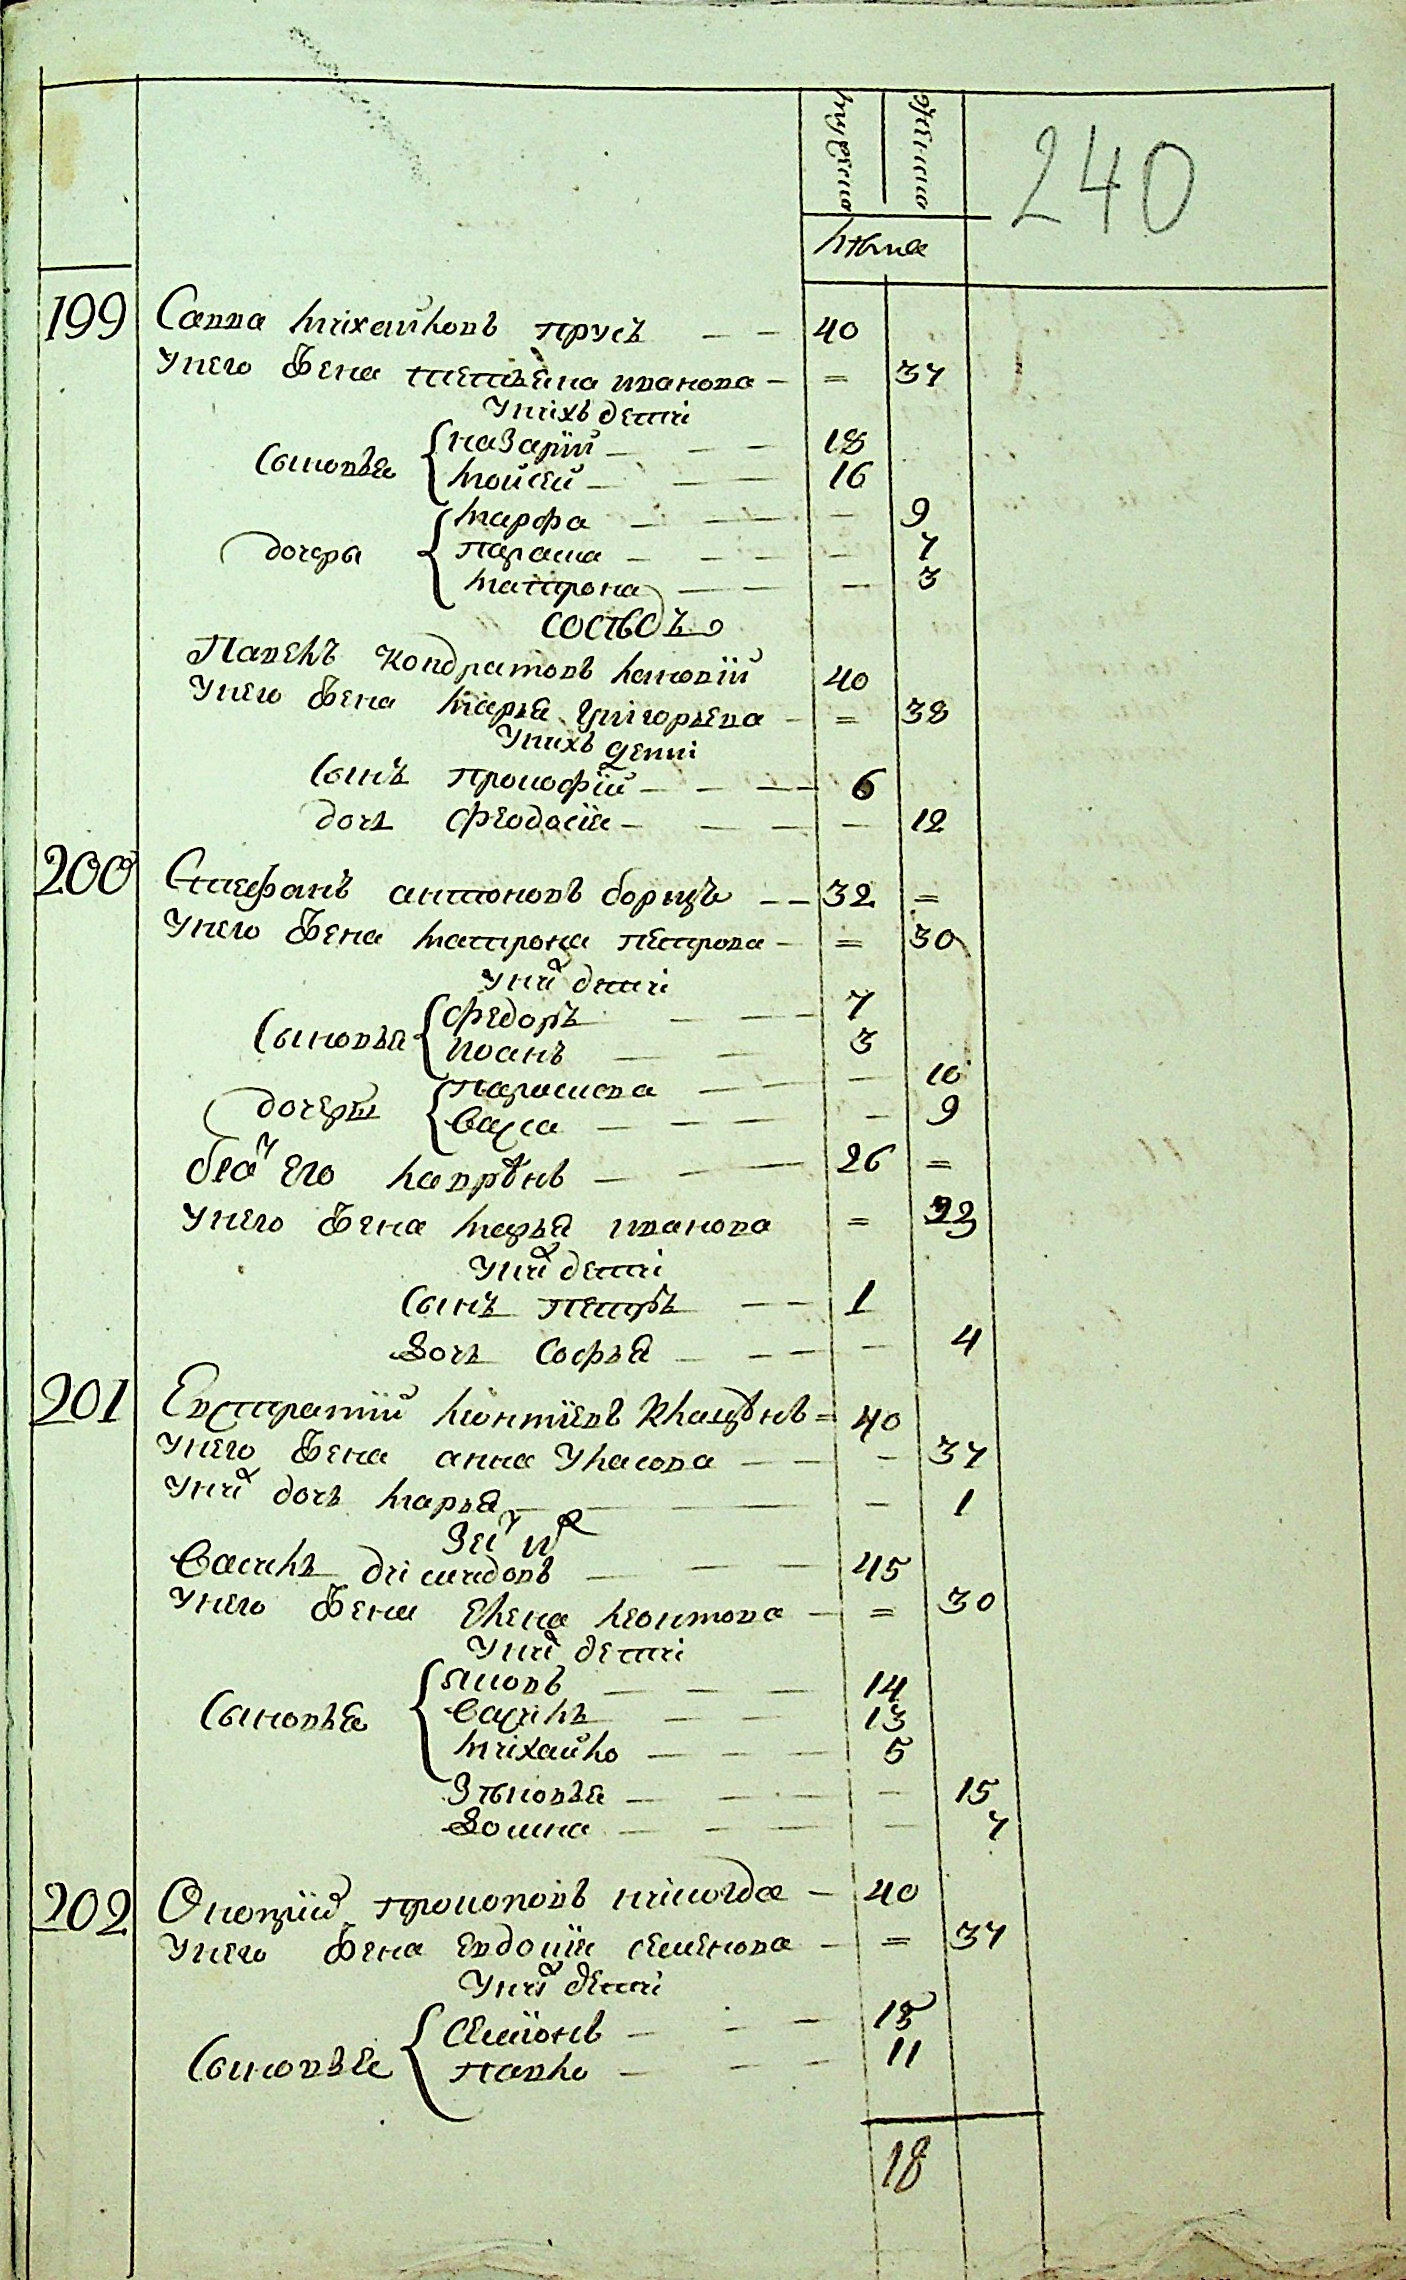 мужеска женска
240
лѣта
199 Савва михайловъ прусъ — — 40
Унего жена татьяна иванова — = 37
Унихъ дети
Сыновья { назарїй — — — 18
мойсей — — — 16
дочеры { марфа — — — — 9
параска — — — — 7
матрона — — — 3
сосѣдъ
Павелъ кондратовъ лановїй 40
Унего жена марья григорьева — = 38
Унихъ дети
Сынъ прокофїй — — — 6
дочь феодосїя — — — — 12
200 Стефанъ антоновъ борецъ — — 32 =
Унего жена матрона петрова — = 30
Уних дети
Сыновья { федоръ — — 7
иоанъ — — 3
дочеры { парасковa — — — 10
васса — — — — 9
брат его лаврѣнъ — — — 26 =
Унего жена марья иванова = 23
Уних дети
Сынъ петръ — — 1
дочь софья — — — — 4
201 Евстратїй леонтїевъ = 40
Унего жена анна Уласова — — — 37
Уних дочь марья — — — — 1
зят их
василь демидовъ — — — 45
Унего жена елена леонтова — = 30
Уних дети
Сыновья { яковъ — — — 14
василь — — — 13
михайло — — — 5
зѣновья — — — — 15
домна — — — — 7
202 Онопрїй прокоповъ — 40
Унего жена евдокїя семенова — = 37
Уних дети
Сыновья { семїонъ — — — 15
павло — — — 11
18